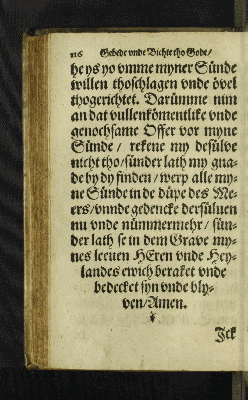 116 Gebede vnde Bichte tho Gode/
he ys yo vmme myner Sünde
willen thoschlagen vnde övel
thogerichtet. Darümme nim
an dat vullenkömentlike vnde
genochsame Offer vor myne
Sünde/ rekene my desülve
nicht tho/ sünder lath my gna-
de by dy finden/ werp alle my-
ne Sünde in de düpe des Me-
ers/ vnnde gedencke dersüluen
nu vnde nümmermehr/ sün-
der lath se in dem Grave my-
nes leeuen HEren vnde Hey-
landes ewich beraket vnde
bedecket syn vnde bly-
ven/ Amen.
Ick